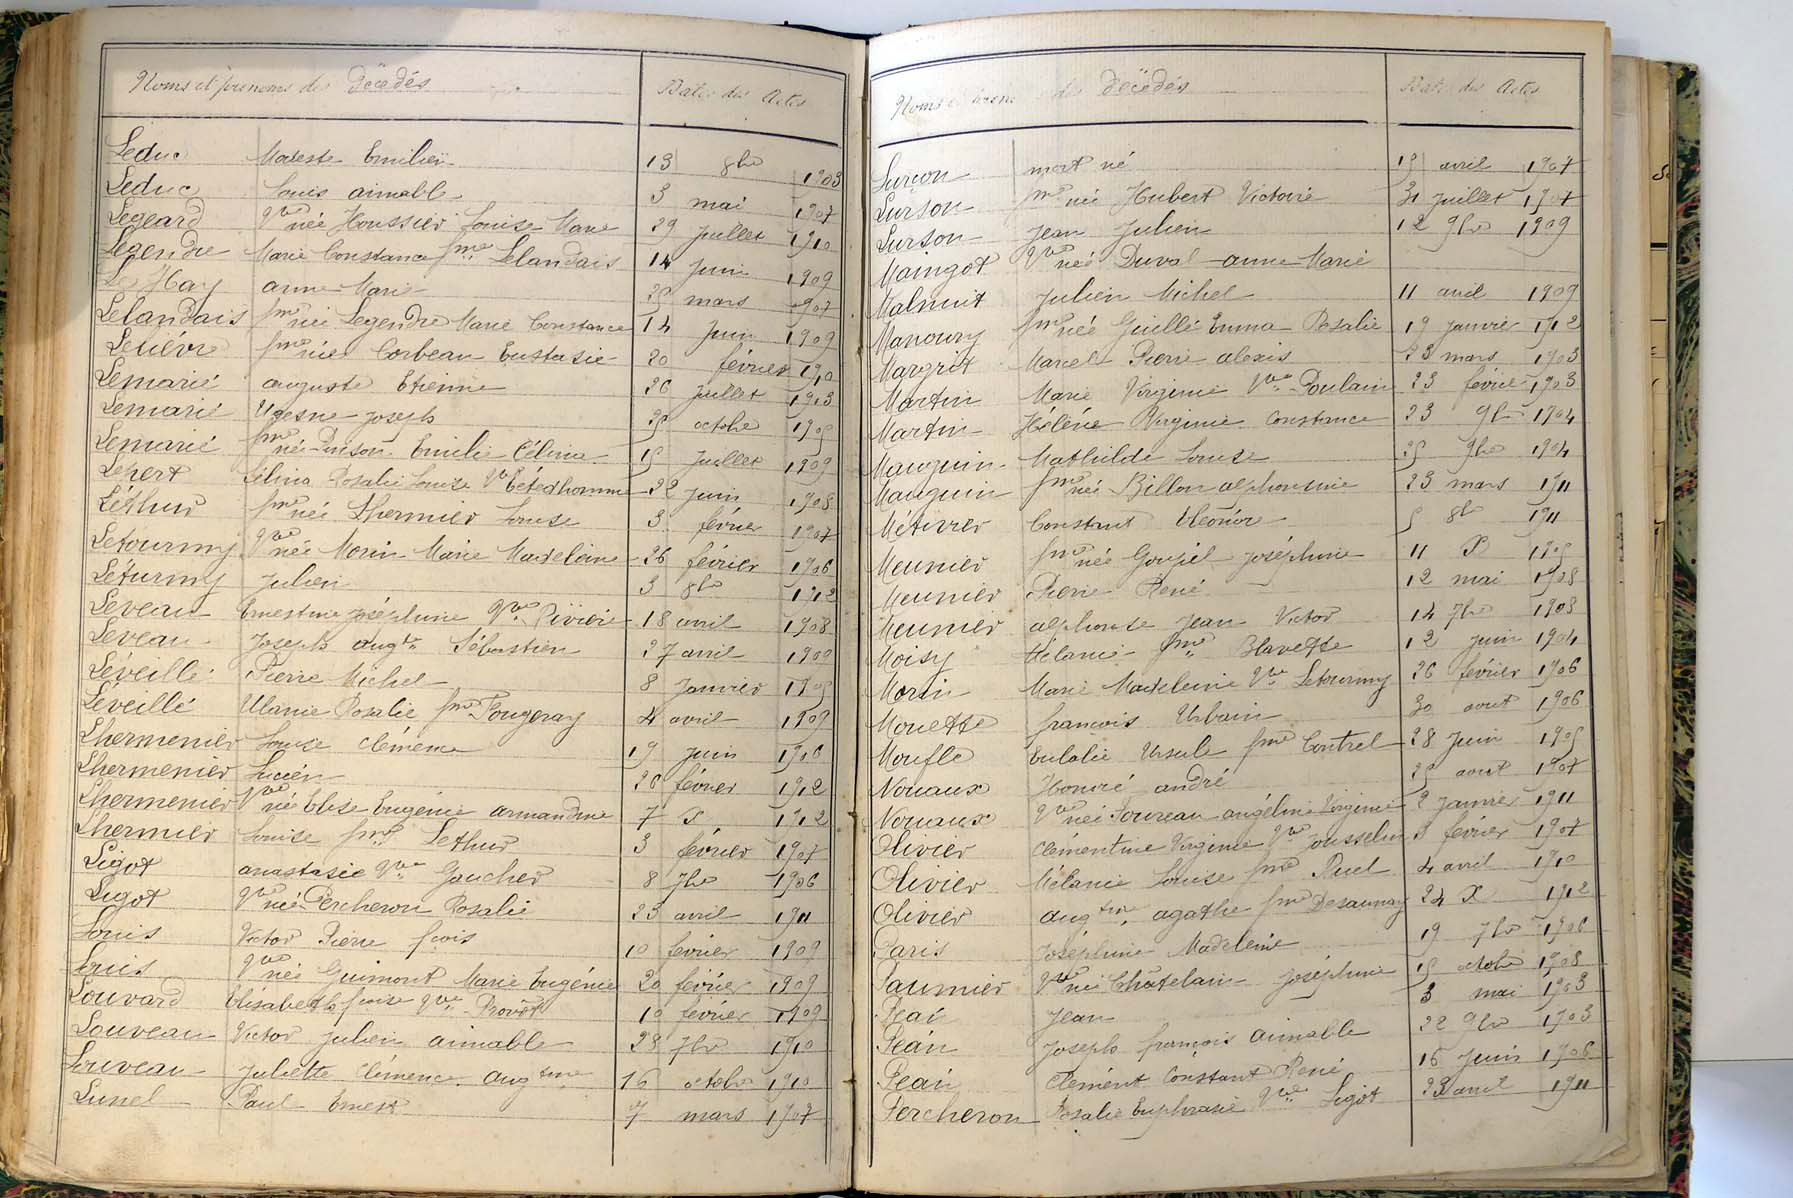 Noms et prénoms des Décédés Dates des Actes
Leduc Modeste Emilien 13 8bre 1903
Leduc Louis aimable 3 mai 1907
Legeard Vve née Houssier Louise Marie 29 juillet 1910
Legendre Marie Constance fme Lelandais 14 juin 1909
Le Hay anne Marie 25 mars 1907
Lelandais fme née Legendre Marie Constance 14 juin 1909
Lelievre fme née Corbeau Eustasie 20 février 1910
Lemarié auguste Etienne 26 juillet 1913
Lemarié joseph 25 octobre 1905
Lemarié fme née Pinson Emilie Célina 15 juillet 1909
Lepert Célina Rosalie Louise Ve Tétedhomme 22 juin 1908
Léthur fme née Lhermier Louise 3 février 1907
Letourmy Vve née Morin Marie Madeleine 26 février 1906
Léturmy Julien 3 8bre 1912
Leveau Ernestine joséphine Vve Rivière 18 avril 1908
Leveau Joseph augte Sébastien 27 avril 1909
Léveillé Pierre Michel 8 janvier 1905
Léveillé Ulanie Rosalie fme Fougeray 4 avril 1909
Lhermenier Louise Clémence 19 juin 1906
Lhermenier Lucien 26 février 1912
Lhermenier Vve née Elise Eugénie armandine 7 X 1912
Lhermier Louise fme Lethur 3 février 1907
Ligot anastasie Vve Gaucher 8 7bre 1906
Ligot Vve née Percheron Rosalie 23 avril 1911
Louis Victor Pierre fcois 10 février 1909
Louis Vve née Guimont Marie Eugénie 20 février 1909
Louvard Elisabeth fcoise Vve Provôt 10 février 1909
Louveau Victor Julien aimable 28 7bre 1910
Louveau Juliette Clémence augtine 16 octobre 1910
Lunel Paul Ernest 7 mars 1907
Noms et prénoms des Décédés Dates des Actes
Surçon mort né 15 avril 1907
Surson fme née Hubert Victoire 31 juillet 1907
Surson Jean Julien 12 9bre 1909
Maingot Vve née Duval anne Marie
Malnuit Julien Michel 11 avril 1909
Manoury fme née Guillé Emma Rosalie 19 janvier 1912
Margrit Marcel Pierre alexis 23 mars 1903
Martin Marie Virginie Vve Poulain 23 février 1903
Martin Hélène Virginie Constance 23 9bre 1904
Mauguin Mathilde Louise 25 9bre 1904
Mauguin fme née Billon alphonsine 23 mars 1911
Métivier Constant Eléonor 5 8bre 1911
Meunier fme née Goupil Joséphine 11 X 1905
Meunier Pierre René 12 mai 1908
Meunier alphonse Jean Victor 14 7bre 1908
Moisy Mélanie fme Blavette 12 juin 1904
Morin Marie Madeleine Vve Letourmy 26 février 1906
Mouette francois Urbain 30 aout 1906
Moufle Eulalie Ursule fme Contrel 28 juin 1905
Nouaux Honoré andré 25 aout 1907
Nouaux Vve née Foureau angéline Virginie 2 janvier 1911
Olivier Clémentine Virginie Vve Jousselin 5 février 1907
Olivier Mélanie Louise fme Ruel 4 avril 1910
Olivier augtine agathe fme Desaunay 24 X 1912
Paris Joséphine Madeleine 19 7bre 1906
Paumier Vve née Châtelain Joséphine 15 octobre 1908
Péan Jean 3 mai 1903
Péan Joseph françois aimable 22 9bre 1903
Péan Clément Constant René 16 juin 1906
Percheron Rosalie Euphrasie Vve Ligot 23 avril 1911